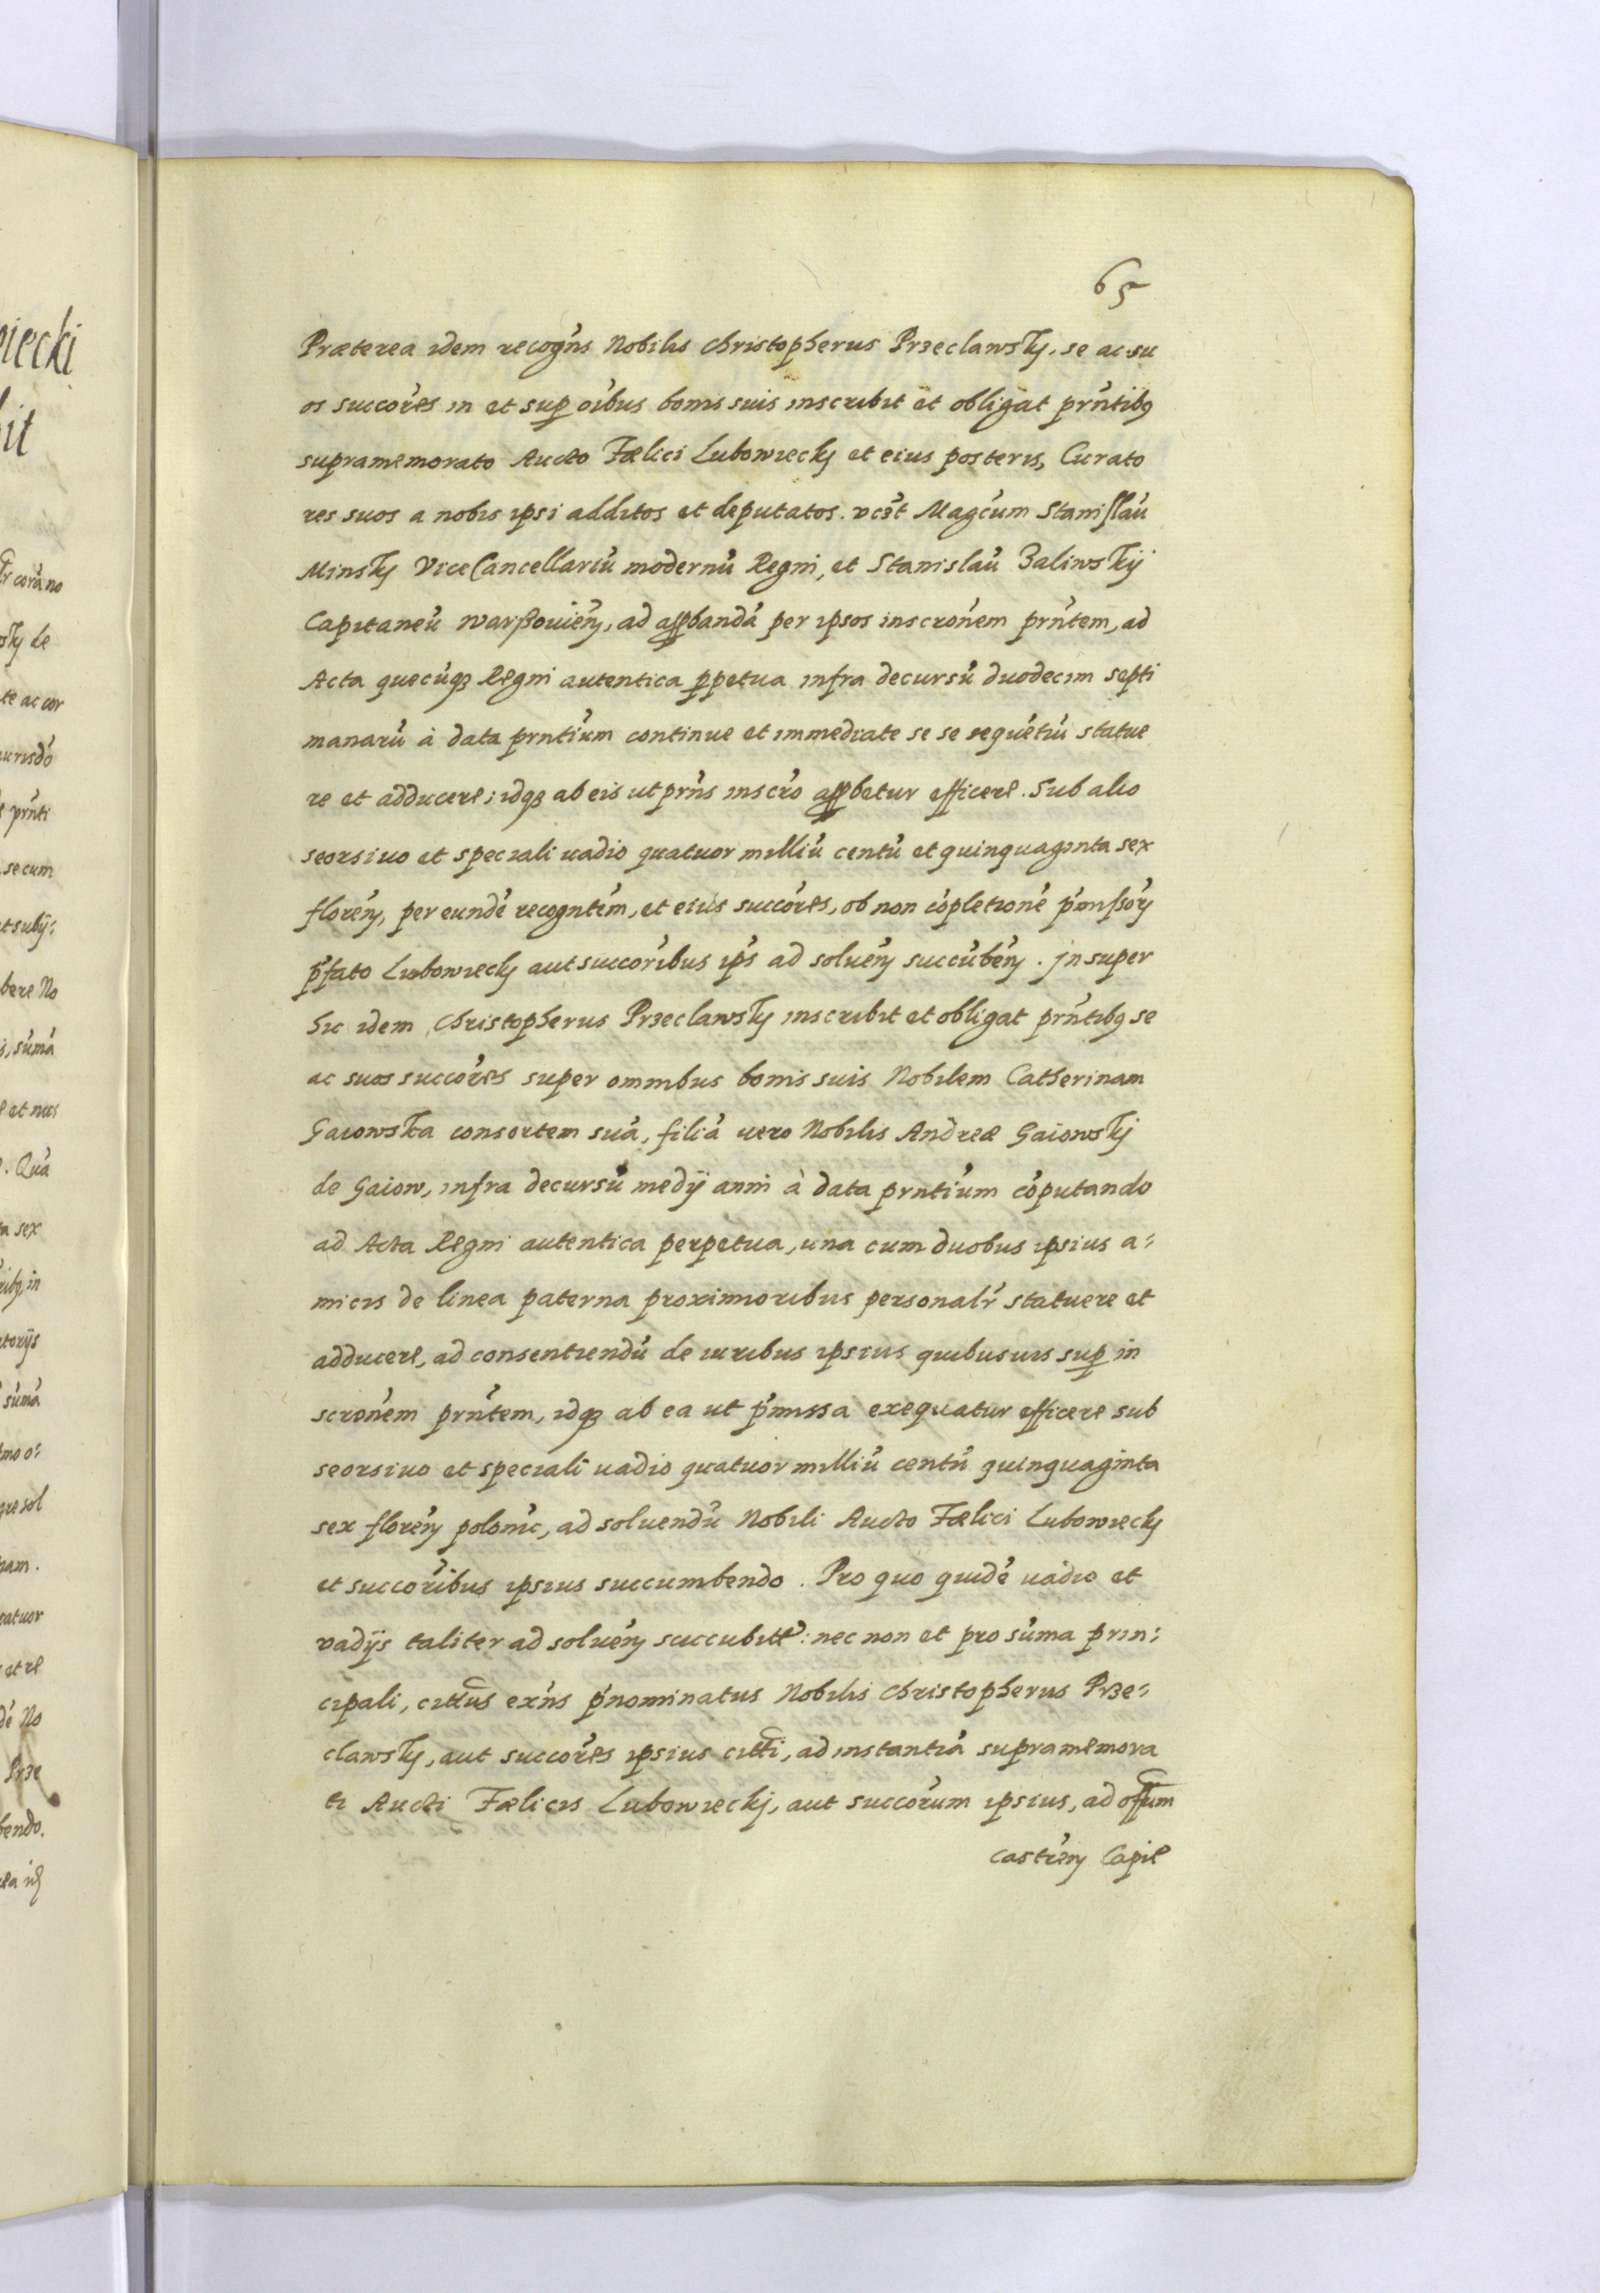 65
Præterea idem recogn̄s Nobilis Christopherus Przeclawsky, se ac su
os succōres in et sup oībus bonis suis inscribit et obligat prn̄tibq
supramemorato Aucto Fælici Lubowiecky et eius posteris, Curato
res suos a nobis ipsi additos et deputatos. vczt Magcūm Stanislaū
Minsky ViceCancellariū modernū Regni, et Stanislaū Zaliwskÿ
Capitaneū warßouień, ad appbandā per ipsos inscrōnem prn̄tem, ad
Acta quecūqȝ Regni autentica ppetua infra decursū duodecim septi
manarū à data prntiūm continue et immediate se se sequētiū statue
re et adducere; idqȝ ab eis ut prn̄s inscrō appbetur efficere. Sub alio
seorsiuo et speciali uadio quatuor milliū centū et quinquaginta sex
floreń, per eundē recogntēm, et eius succōres, ob non cōpletionē p̄missorȝ
p̄fato Lubowiecky aut succorībus ips̄ ad solueń succūbeń. Jn super
hic idem Christopherus Przeclawsky inscribit et obligat prn̄tibq se
ac suos succōres super omnibus bonis suis Nobilem Catherinam
Gaiowska consortem suā, filiā uero Nobilis Andreæ Gaiowskÿ
de Gaiow, infra decursū medÿ anni à data prntiūm cōputando
ad Acta Regni autentica perpetua, una cum duobus ipsius a=
micis de linea paterna proximioribus personalr̄ statuere et
adducere, ad consentiendū de iuribus ipsius quibusuis sup in
scrōnem prn̄tem, idqȝ ab ea ut p̄missa exequatur efficere sub
seorsiuo et speciali uadio quatuor milliū centū quinquaginta
sex floreń poloni̅c, ad soluendū Nobili Aucto Fælici Lubowiecky
et succorībus ipsius succumbendo. Pro quo quidē uadio et
vadÿs taliter ad solueń succubitt̄: nec non et pro sūma prin=
cipali, cittus exn̄s p̄nominatus Nobilis Christopherus Prze=
clawsky, aut succōres ipsius citti, ad instantiā supramemora
ti Aucti Fælicis Lubowieckj, aut succōrum ipsius, ad offūm
castreń Capiē